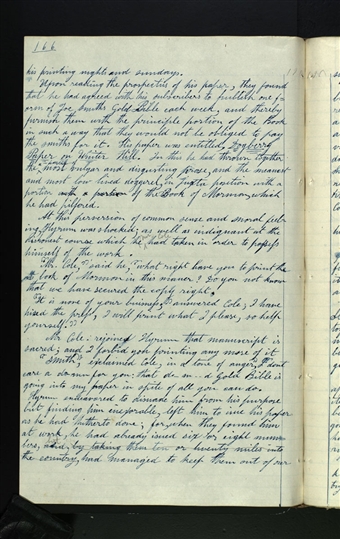 166
his printing nights and sundays.
Upon reading the prospectus of his paper, they found
that he had agreed with his subscribers to publish one f-
orm of Joe Smiths Gold Bible each week, and thereby
furnish them with the principle portion of the Book
in such a way that they would not be obliged to pay
the smiths for it. His paper was entitled, Dogberry
Paper on Winter Hill. In this he had thrown together
the most vulgar and disgusting prose, and the meanest
and most low lived doggerel, in juxta position with a
portion of the Book of Mormon, which
he had pilfered.
At this perversion of common sense and moral feel-
ing, Hyrum was shocked, as well as indignant at the
dishonest course which he had taken in order to possess
himself of the work.
"Mr Cole," said he, "what right have you to print the
Book of Mormon in this manner? Do you not know
that we have secured the copy right,"
"It is none of your business," answered Cole, "I have
hired the press, & I will print what I please, so help
yourself."
"Mr Cole," rejoined Hyrum "that manuscript is
sacred, and I forbid you printing any more of it."
"Smith," exclaimed Cole, in a tone of anger, "I dont
care a damn for you: that dam-d Gold Bible is
going into my paper in spite of all you can do.
Hyrum endeavored to disuade him from his purpose
but finding him inexorable, left him to issue his paper
as he had hitherto done; for when they found him
at work, he had already issued six or eight num-
bers, and by taking them ten or twenty miles into
the country, had managed to keep them out of our